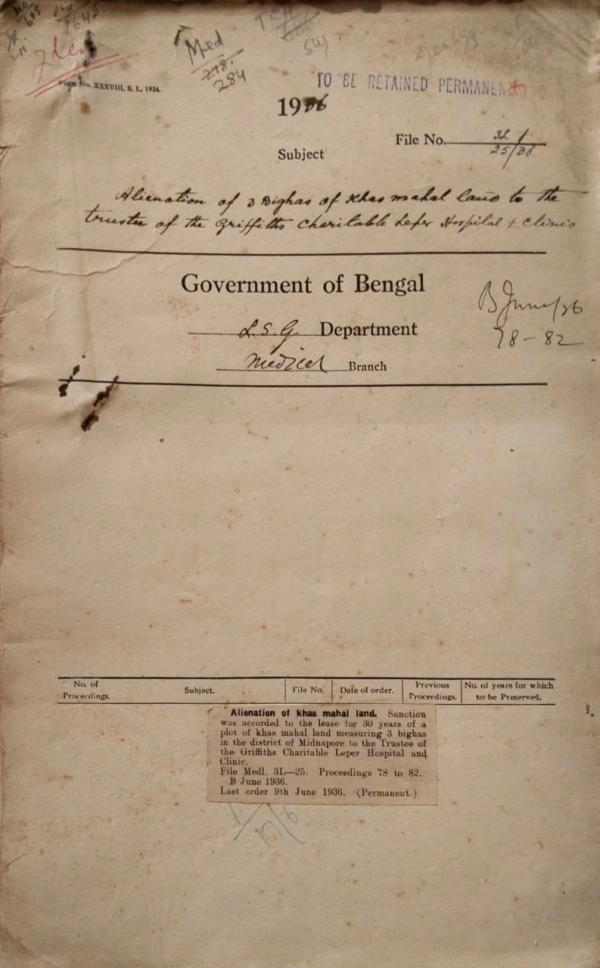 Med
218.
284
TO BE RETAINED PERMANENT
Form No. XXXVIII, S. I., 1934.
1936
File No. 3L/1
25/36
Subject
Alienation of 3 Bighas of Khas mahal land to the
trustee of the Griffiths Charitable Leper Hospital + Clinic
Government of Bengal
L.S.G. Department
Medical Branch
B June/36
78-82
No. of Proceedings. Subject. File No. Date of order. Previous Proceedings. No. of years for which to be Preserved.
Alienation of khas mahal land. Sanction
was accorded to the lease for 30 years of a
plot of khas mahal land measuring 3 bighas
in the district of Midnapore to the Trustee of
the Griffiths Charitable Leper Hospital and
Clinic.
File Medl. 3L—25. Proceedings 78 to 82.
B June 1936.
Last order 9th June 1936. (Permanent.)